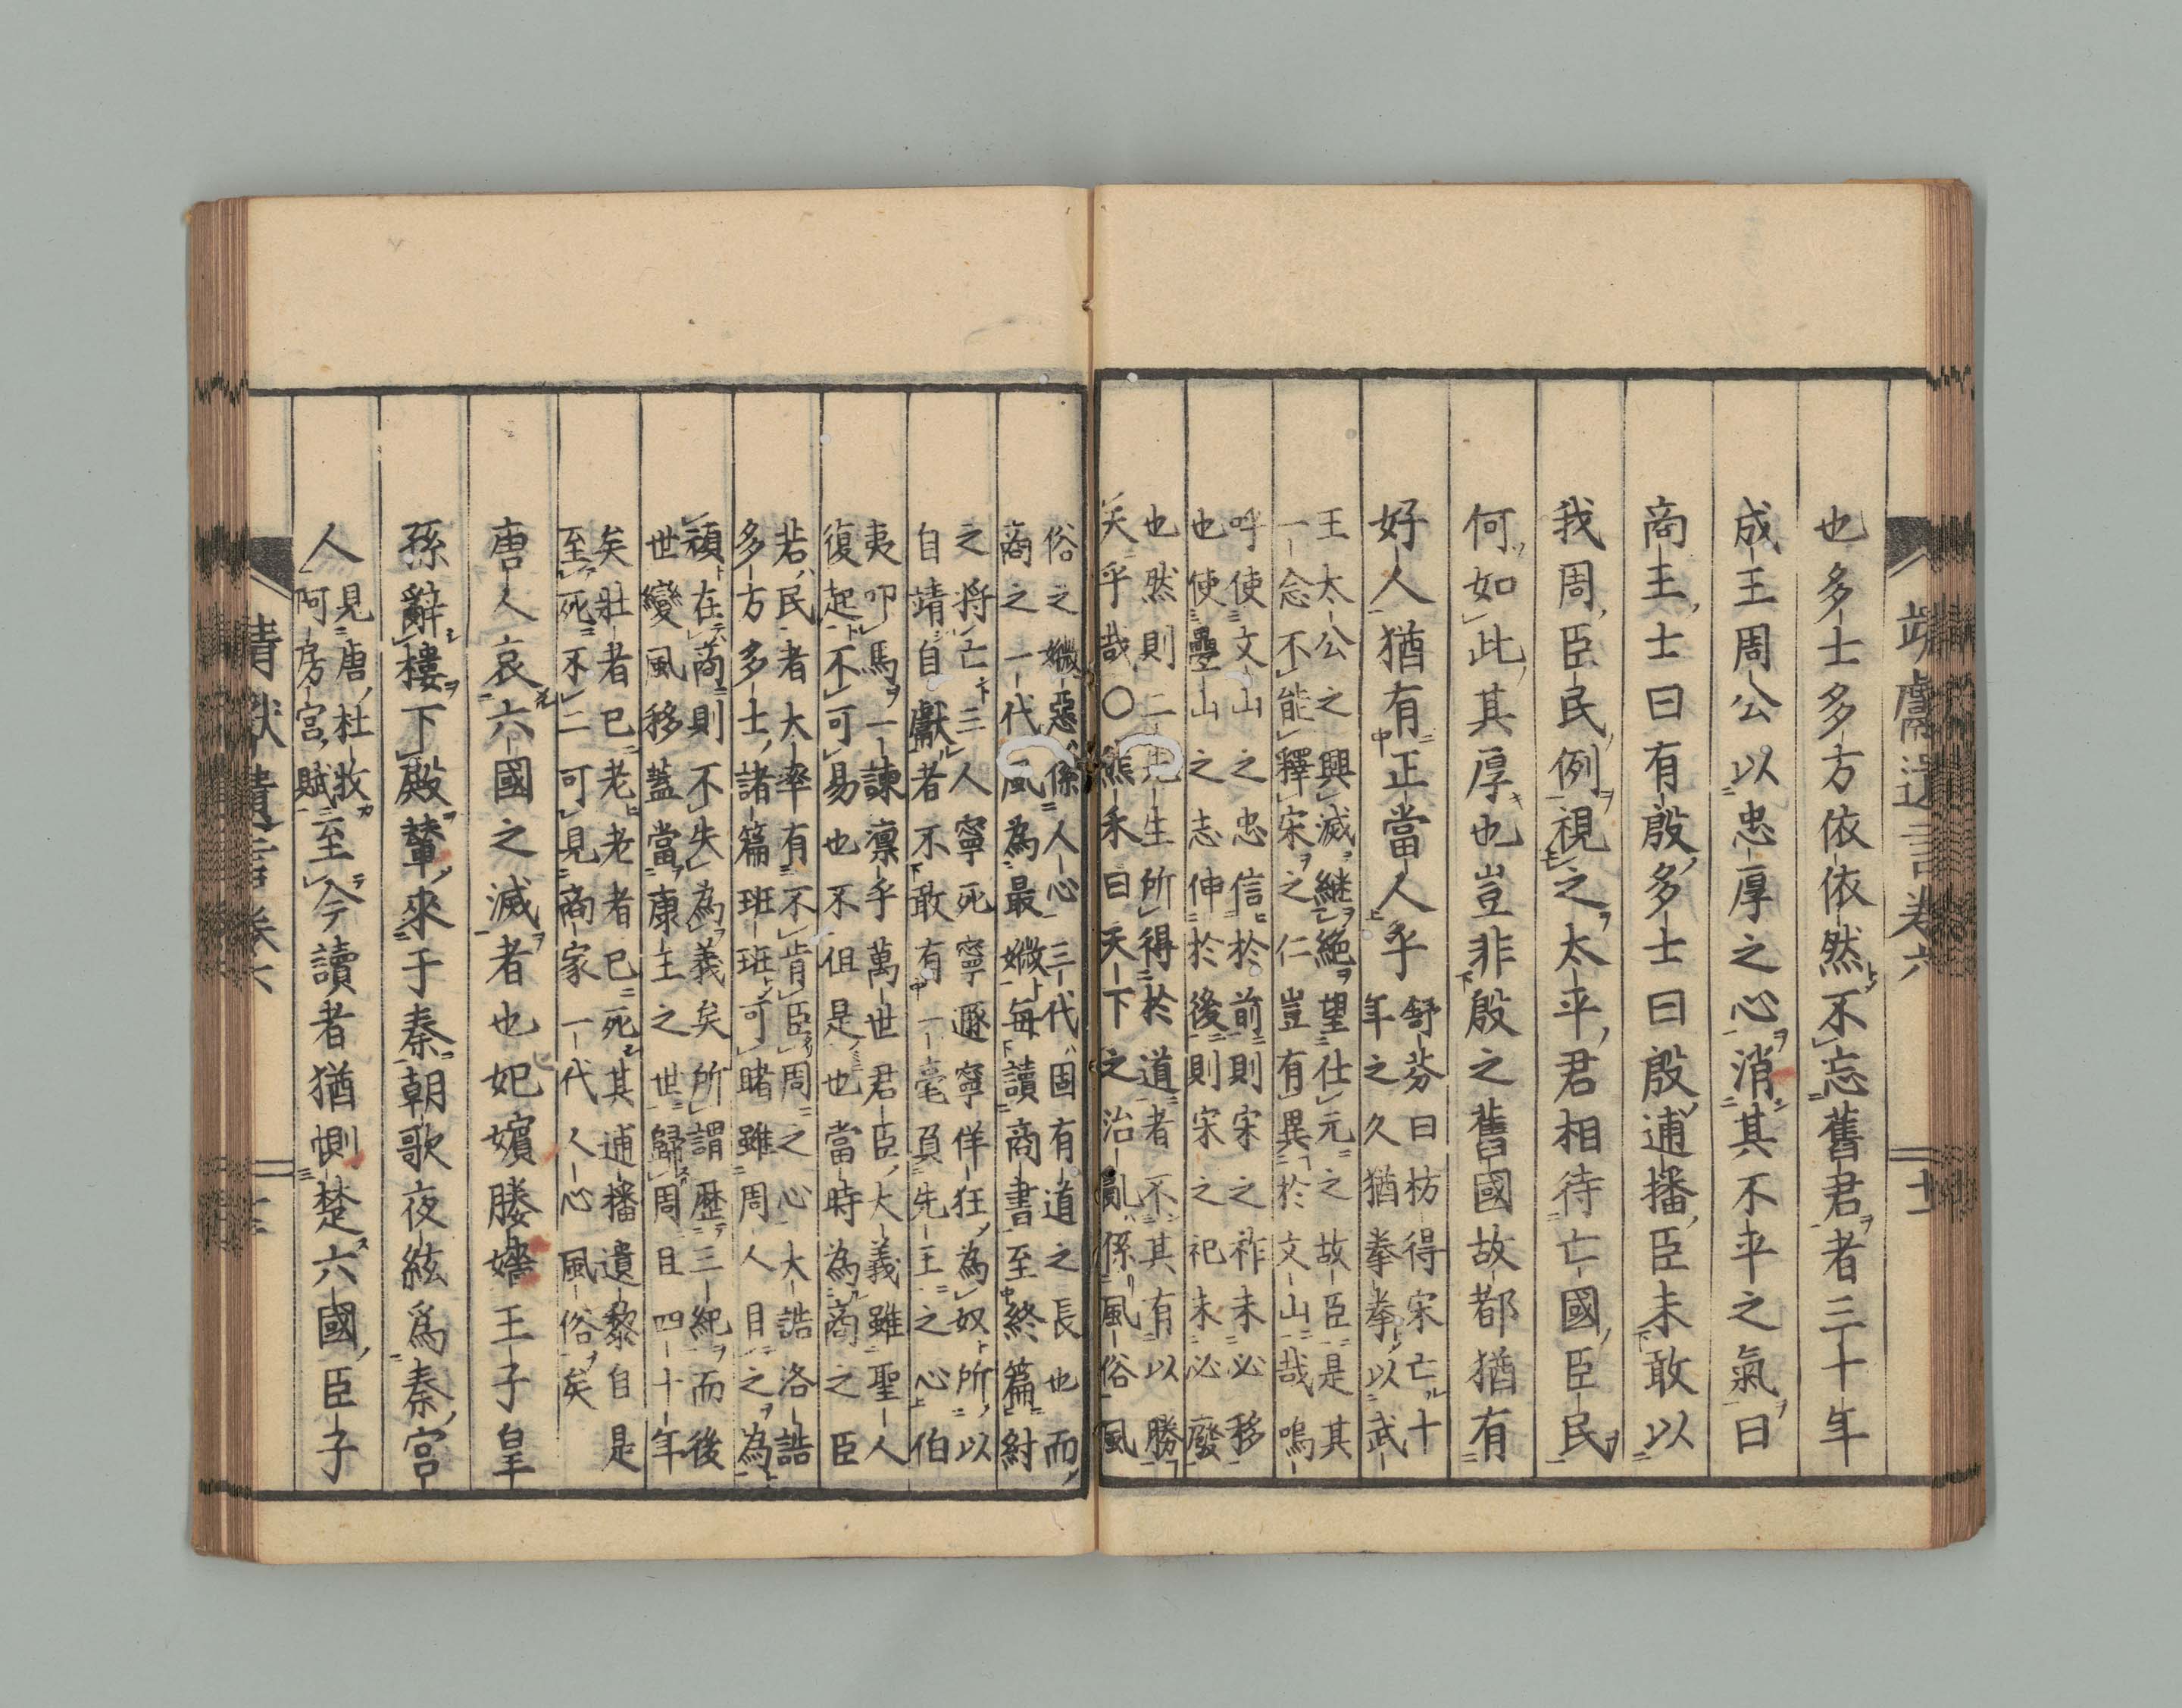 靖獻遺言卷六
十二
也多士多方依依然不忘舊君者三十年
成王周公以忠厚之心消其不平之氣曰
商王士曰有殷多士曰殷逋播臣未敢以
我周臣民例視之太平君相待亡國臣民
何如此其厚也豈非殷之舊國故都猶有
好人猶有正當人乎
舒芬曰枋得宋亡十
年之久猶拳拳以武
王太公之興滅繼絶望仕元之故臣是其
一念不能釋宋之仁豈有異於文山哉嗚
呼使文山之忠信於前則宋之祚未必移
也使疊山之志伸於後則宋之祀未必廢
也然則二先生所得於道者不其有以勝
天乎哉○熊禾曰天下之治亂係風俗風
俗之媺惡係人心三代固有道之長也而
商之一代風為最媺每讀商書至終篇紂
之將亡三人寧死寧遯寧佯狂為奴所以
自靖自獻者不敢有一毫負先王之心伯
夷叩馬一諫凛乎萬世君臣大義雖聖人
復起不可易也不但是也當時為商之臣
若民者大率有不肯臣周之心大誥洛誥
多方多士諸篇班班可睹雖周人目之為
頑在商則不失為義矣所謂歷三紀而後
世變風移蓋當康王之世歸周且四十年
矣壯者已老老者已死其逋播遺黎自是
至死不二可見商家一代人心風俗矣
唐人哀六國之滅者也妃嬪媵嬙王子皇
孫辭樓下殿輦來于秦朝歌夜絃爲秦宮
人
見唐杜牧
阿房宮賦
至今讀者猶惻楚六國臣子
靖獻遺言卷六